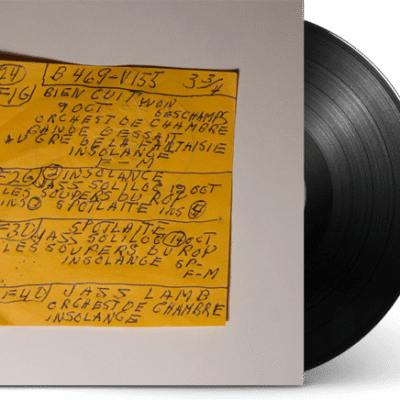 24 B 469-V155 3 3/4
F1G BIEN CUIT YVON
9 OCT DESCHAMPS
ORCHEST DE CHAMBRE
BANDE GESSAIT
AU GRE DE LA FANTAISIE
INSOLANGE
F-M
F2G 2 INSOLANCE
JASS SOLILOQ 19 OCT
LES SOUPERS DU ROY
INS SPOTLAITE INS 4
F3D SPOTLAITE
JASS SOLILOQ 19 OCT
LES SOUPERS DU ROY
INSOLANGE SP-
F-M
F4D JASS LAMB
ORCHEST DE CHAMBRE
INSOLANGE